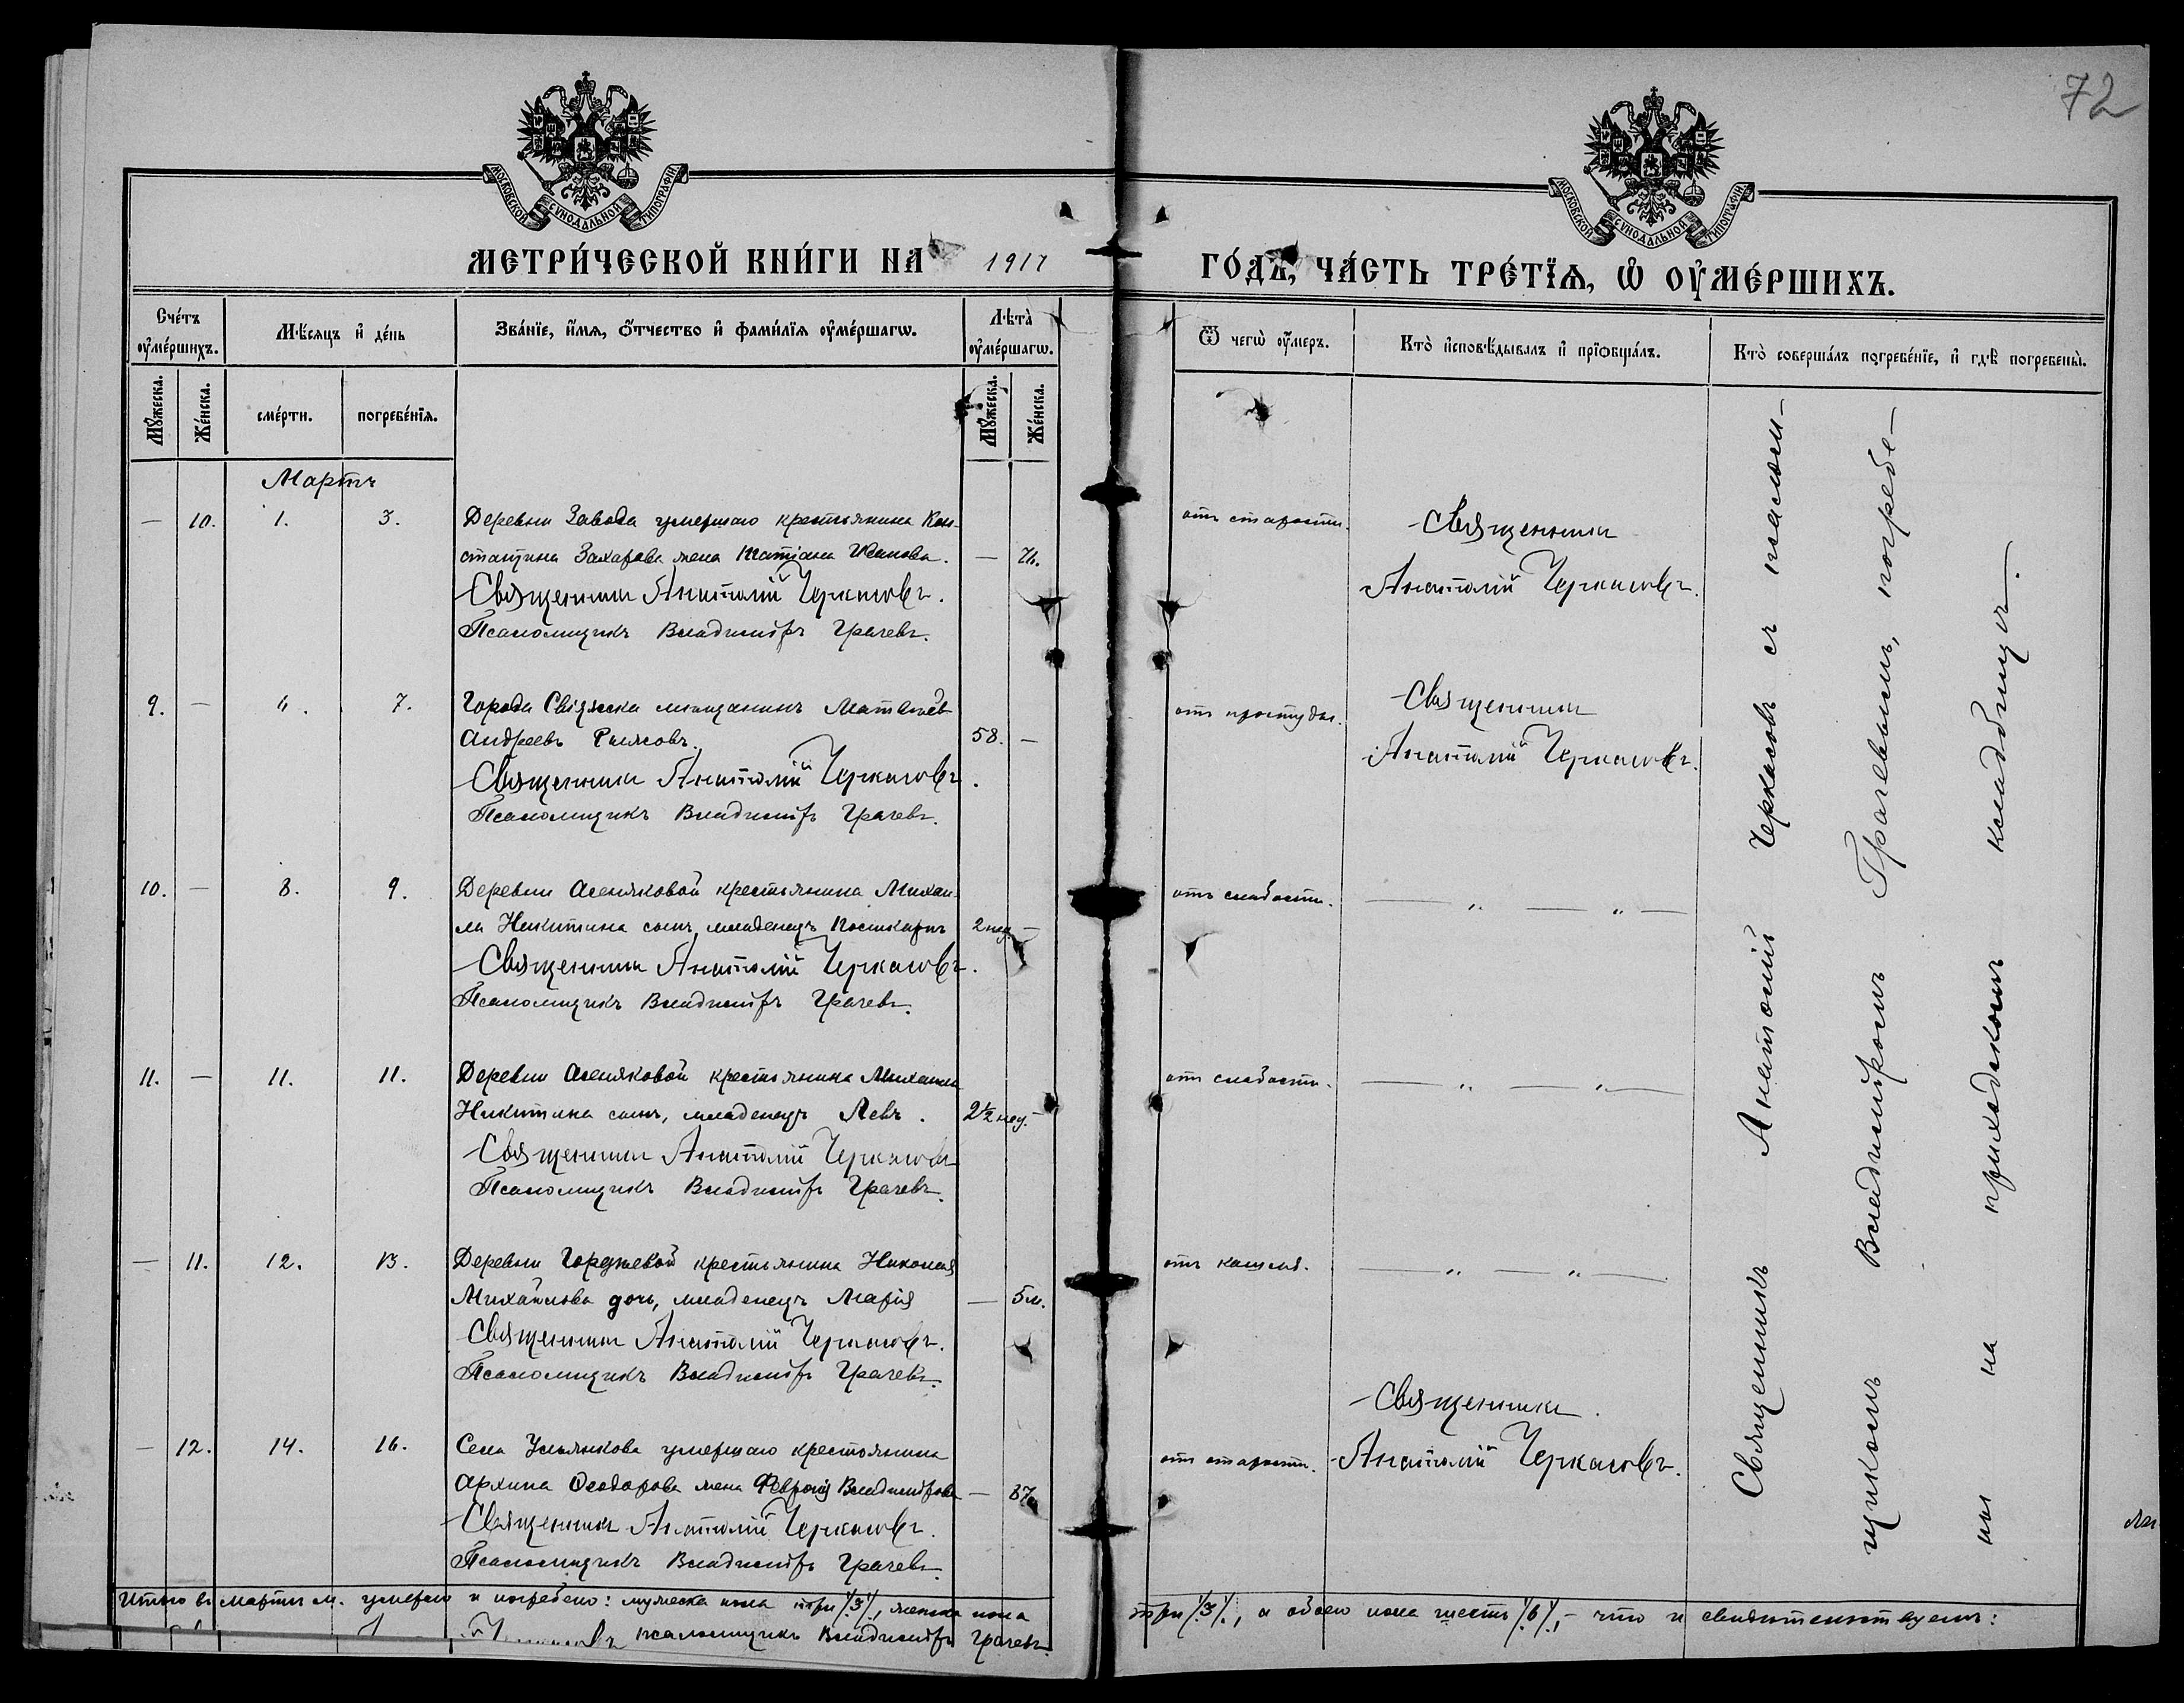 72
МОСКОВСКОЙ СУНОДАЛЬНОЙ ТИПОГРАФІИ
МОСКОВСКОЙ СУНОДАЛЬНОЙ ТИПОГРАФІИ
МЕТРИ́ЧЕСКОЙ КНИ́ГИ НА 1917 ГО́ДЪ, ЧА́СТЬ ТРЕ́ТЇѦ, Ѽ ОУ҆МЕ́РШИХЪ.
Сче́тъ оу҆ме́ршихъ.
Мѣ́сѧцъ и҆ де́нь
Зва́нїе, и҆́мѧ, ѻ҆́тчество и҆ фами́лїѧ оу҆ме́ршагѡ.
Лѣта̀ оу҆ме́ршагѡ.
Ѿ чегѡ̀ оу҆́меръ.
Кто̀ и҆сповѣ́дывалъ и҆ прїѡбща́лъ.
Кто̀ соверша́лъ погребе́нїе, и҆ гдѣ̀ погребены̀.
Мꙋ́жеска.
Же́нска.
сме́рти.
погребе́нїѧ.
Мꙋ́жеска.
Же́нска.
Мартъ
— 10. 1. 3. Деревни Завода умершаго крестьянина Кон-
стантина Захарова жена Татіана Иванова. — 76. отъ старости.
Священникъ Анатолій Черкасовъ.
Псаломщикъ Владиміръ Грачевъ.
Священникъ
Анатолій Черкасовъ.
9. — 7. Города Свіяжска мѣщанинъ Матвѣй
Андреевъ 58. — отъ простуды.
Священникъ Анатолій Черкасовъ.
Псаломщикъ Владиміръ Грачевъ.
Священникъ
Анатолій Черкасовъ.
10. — 8. 9. Деревни Асеняковой крестьянина Михаи-
ла Никитина сынъ, младенецъ 2 нед. — отъ слабости. — „ — „ —
Священникъ Анатолій Черкасовъ.
Псаломщикъ Владиміръ Грачевъ.
11. — 11. 11. Деревни Асеняковой крестьянина Михаила
Никитина сынъ, младенецъ Левъ. 2½ нед. — отъ слабости. — „ — „ —
Священникъ Анатолій Черкасовъ
Псаломщикъ Владиміръ Грачевъ.
— 11. 12. 13. Деревни крестьянина Николая
Михайлова дочь, младенецъ Марія — 5 м. отъ кашля. — „ — „ —
Священникъ Анатолій Черкасовъ.
Псаломщикъ Владиміръ Грачевъ.
— 12. 14. 16. Села Ульянкова умершаго крестьянина
Архипа Ѳеодорова жена Февронія Владимірова — 87. отъ старости.
Священникъ Анатолій Черкасовъ.
Псаломщикъ Владиміръ Грачевъ.
Священникъ.
Анатолій Черкасовъ.
Священникъ Анатолій Черкасовъ съ псалом-
щикомъ Владиміромъ Грачевымъ, погребе-
ны на приходскомъ кладбищѣ.
Итого въ мартѣ м. умерло и погребено: мужеска пола три /3/, женска пола три /3/, а обоего пола шесть /6/, – что и свидѣтельствуемъ:
псаломщикъ Владиміръ Грачевъ.